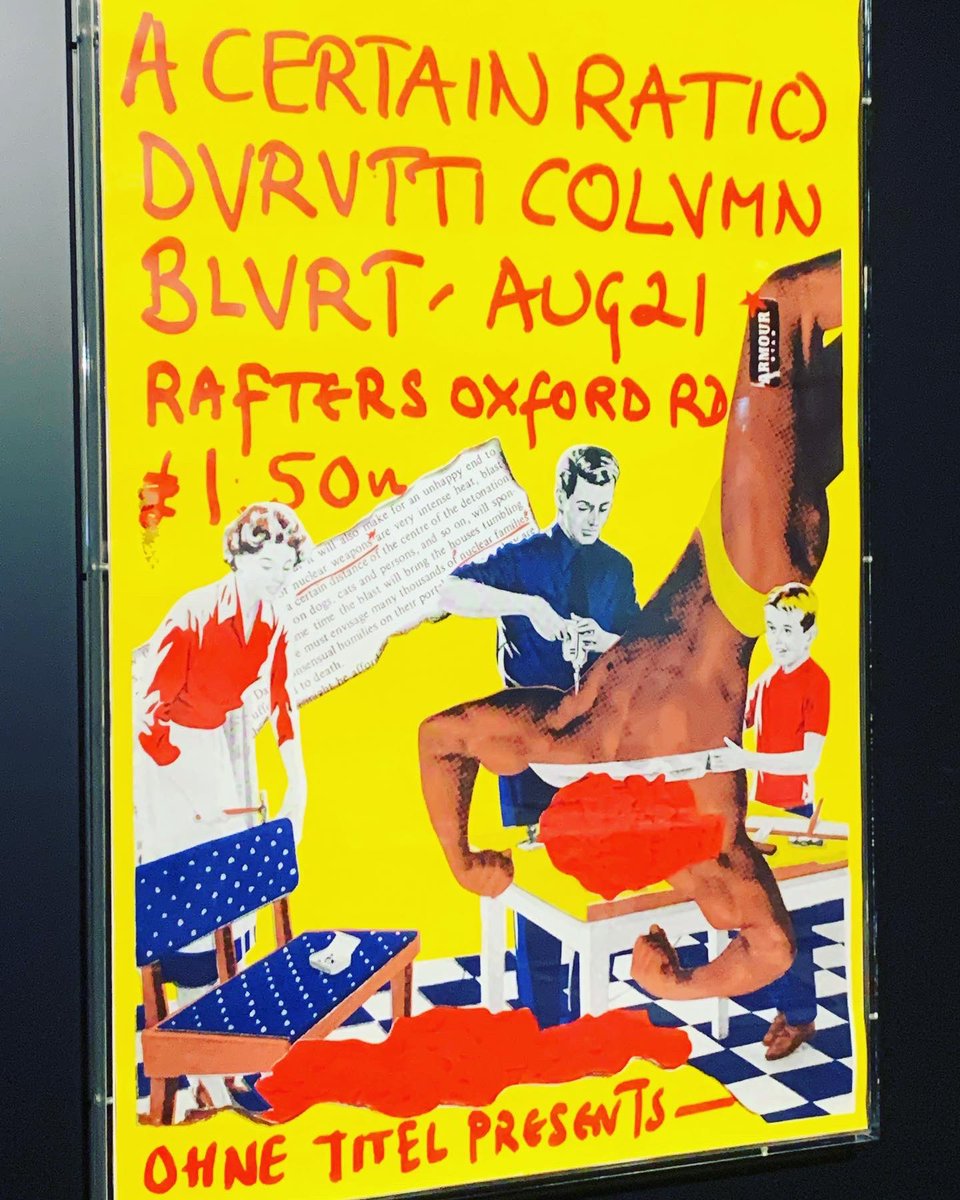 A CERTAIN RATIO
DVRVTTI COLVMN
BLVRT - AUG 21
RAFTERS OXFORD RD
£1.50
ARMOUR
STAR
it will also make for an unhappy end to
nuclear weapons are very intense heat, blast
a certain distance of the centre of the detonation
on dogs, cats and persons, and so on, will spon-
me time the blast will bring the houses tumbling
e must envisage many thousands of nuclear families
nsensual homilies on their
to death.
OHNE TITEL PRESENTS—